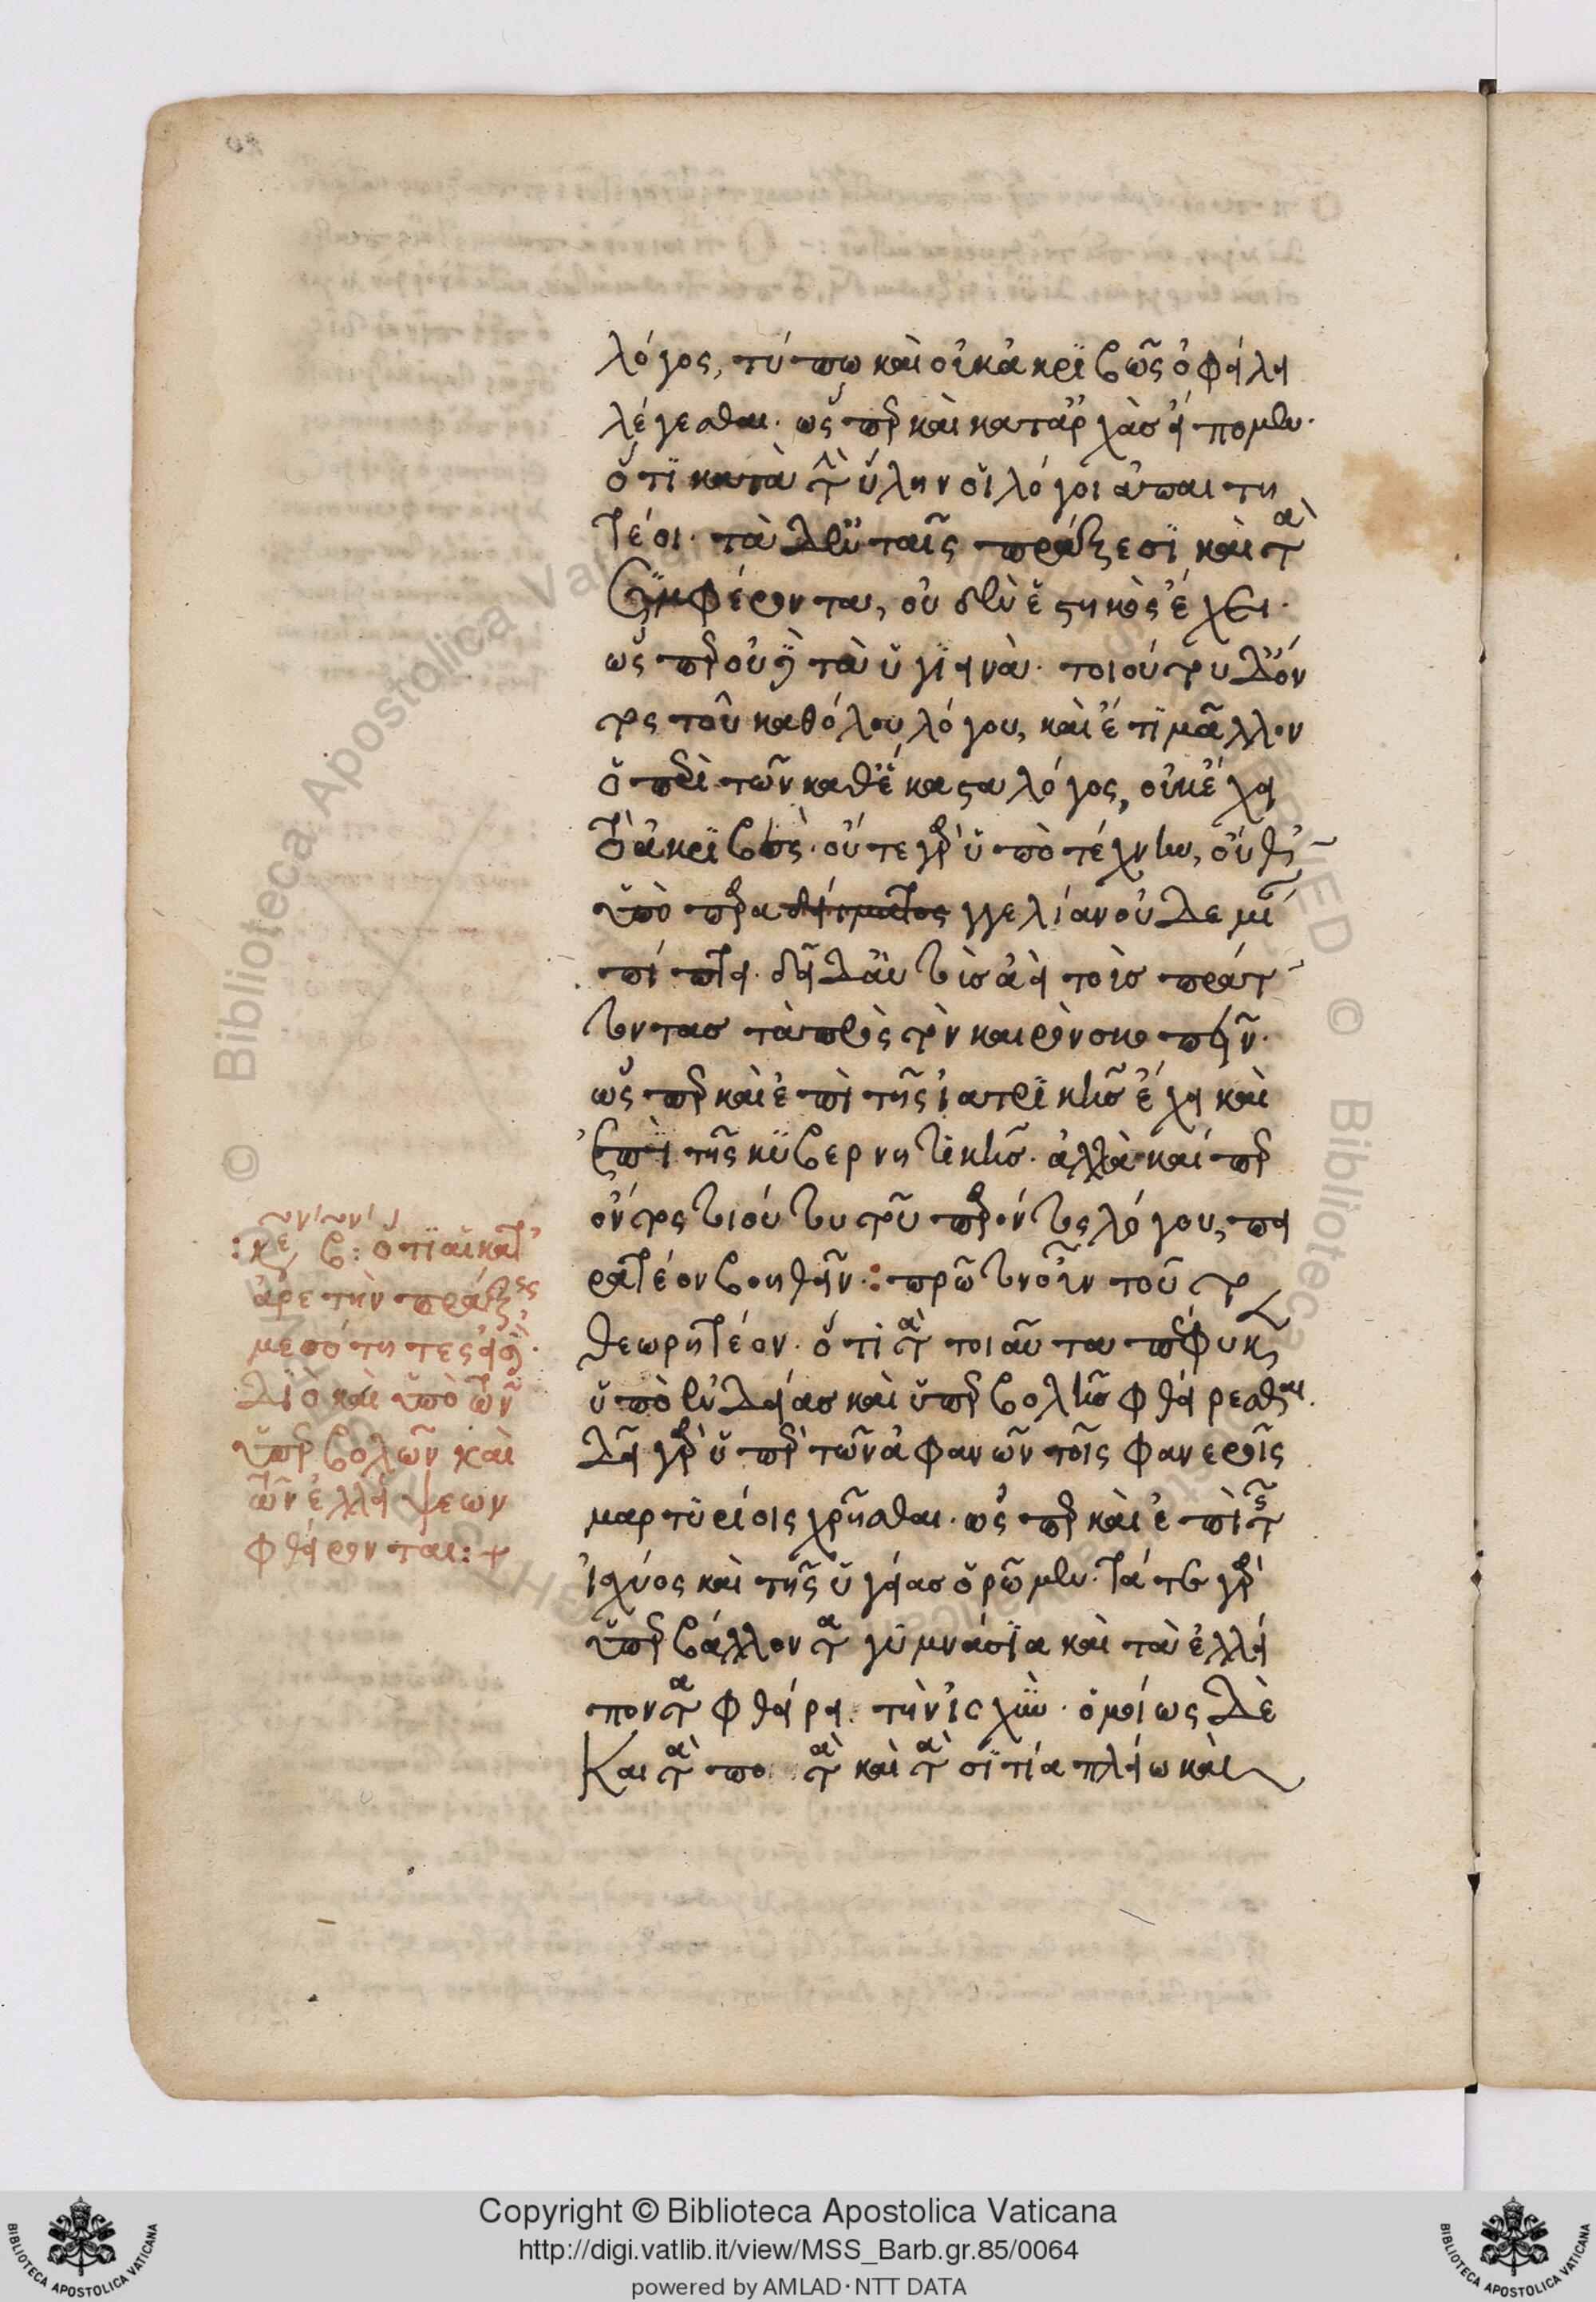 λόγος, τύπω καὶ οὐκ ἀκριβῶς ὀφείλει
λέγεσθαι. ὥσπερ καὶ κατ' ἀρχὰς εἴπομεν.
ὅτι κατὰ τὴν ὕλην οἱ λόγοι ἀπαιτη
τέοι. τὰ δ' ἐν ταῖς πράξεσι καὶ τὰ
συμφέροντα, οὐδὲν ἑστηκὸς ἔχει.
ὥσπερ οὐδὲ τὰ ὑγιεινὰ. τοιούτου δ' ὄν
τος τοῦ καθόλου λόγου, καὶ ἔτι μᾶλλον
ὁ περὶ τῶν καθ' ἕκαστα λόγος, οὐκ ἔχει
τὸ ἀκριβές. οὔτε γὰρ ὑπὸ τέχνην, οὔθ'
ὑπὸ παραγγελίαν οὐδεμίαν
πίπτει. δεῖ δ' αὐτοὺς ἀεὶ τοὺς πράτ
τοντας τὰ πρὸς τὸν καιρὸν σκοπεῖν.
ὥσπερ καὶ ἐπὶ τῆς ἰατρικῆς ἔχει καὶ
ἐπὶ τῆς κυβερνητικῆς. ἀλλὰ καίπερ
ὄντος τοιούτου τοῦ παρόντος λόγου, πει
ρατέον βοηθεῖν : πρῶτον οὖν τοῦτο
θεωρητέον. ὅτι τὰ τοιαῦτα πέφυκεν
ὑπὸ ἐνδείας καὶ ὑπερβολῆς φθείρεσθαι.
δεῖ γὰρ ὑπὲρ τῶν ἀφανῶν τοῖς φανεροῖς
μαρτυρίοις χρῆσθαι. ὥσπερ καὶ ἐπὶ τῆς
ἰσχύος καὶ τῆς ὑγείας ὁρῶμεν. τά τε γὰρ
ὑπερβάλλοντα γυμνάσια καὶ τὰ ἐλλεί
ποντα φθείρει τὴν ἰσχύν. ὁμοίως δὲ
Και τὰ ποτὰ καὶ τὰ σιτία πλείω καὶ
: κε β : ὅτι αἱ κατ'
ἀρετὴν πράξεις
μεσότητές εἰσι.
διὸ καὶ ὑπὸ τῶν
ὑπερβολῶν καὶ
τῶν ἐλλείψεων
φθείρονται : +
Copyright © Biblioteca Apostolica Vaticana
http://digi.vatlib.it/view/MSS_Barb.gr.85/0064
powered by AMLAD·NTT DATA